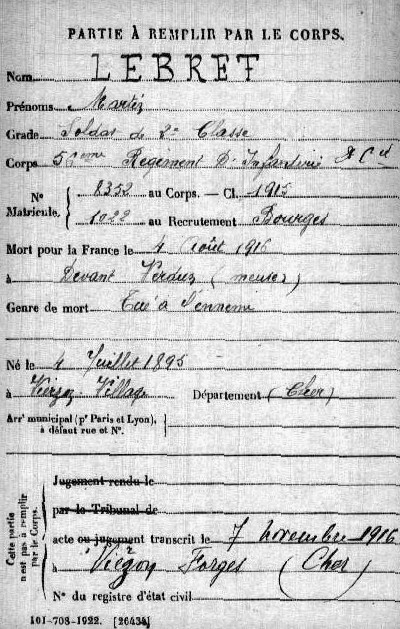 PARTIE À REMPLIR PAR LE CORPS.
Nom LEBRET
Prénoms Martin
Grade Soldat de 2e Classe
Corps 56eme Regiment D'Infanterie
N° Matricule. { 8352 au Corps. — Cl. 1915
1022 au Recrutement Bourges
Mort pour la France le 4 Août 1916
à Devant Verdun (meuse)
Genre de mort Tué à l'ennemi
Né le 4 Juillet 1895
à Vierzon Village Département (Cher)
Arrt municipal (pr Paris et Lyon),
à défaut rue et N°.
Cette partie n'est pas à remplir par le Corps.
Jugement rendu le
par le Tribunal de
acte ou jugement transcrit le 7 novembre 1916
à Vierzon Forges (Cher)
N° du registre d'état civil
101-708-1922. [26434]